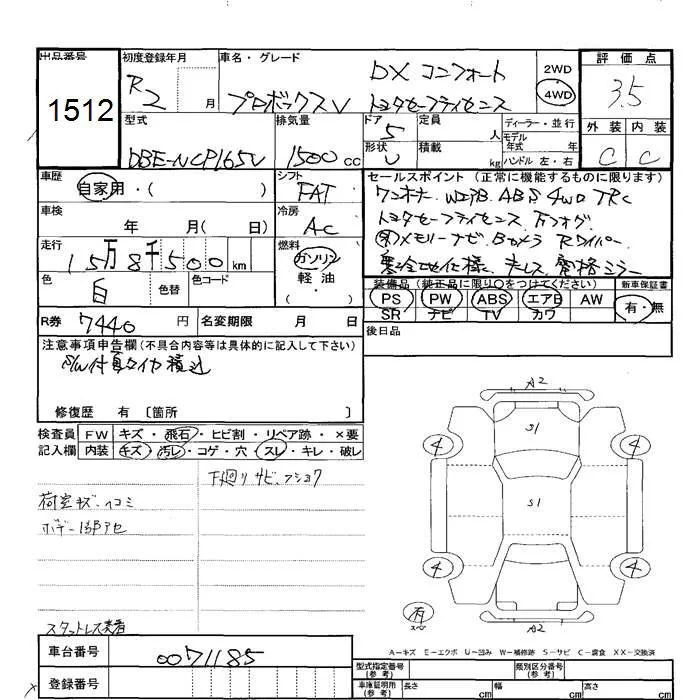 出品番号
1512
初度登録年月
R2 月
車名・グレード
DX コンフォート
プロボックスV トヨタセーフティセンス
2WD
4WD
評価点
3.5
外装 内装
C C
型式
DBE-NCP165V
排気量
1500 cc
ドア
5
形状
V
定員
人
積載
kg
ディーラー・並行
モデル
年式 年
ハンドル 左・右
車歴
自家用・( )
シフト
FAT
セールスポイント (正常に機能するものに限ります)
ワンオーナー WエアB ABS 4WD TRC
トヨタセーフティセンス 下フォグ
メモリーナビ Bカメラ Rワイパー
寒冷地仕様 キーレス 電格ミラー
車検
年 月( 日)
冷房
AC
走行
15万8千500 km
燃料
ガソリン
軽油
・( )
色
白
色替
色コード
装備品 (純正品に限り○をつけてください)
PS PW ABS エアB AW
SR ナビ TV カワ
新車保証書
有・無
R券 7440 円
名変期限 月 日
後日品
注意事項申告欄(不具合内容等は具体的に記入して下さい)
S/W付夏タイヤ積込
修復歴 有 〔箇所 〕
検査員
記入欄
FW キズ・飛石・ヒビ割・リペア跡・×要
内装 キズ・汚レ・コゲ・穴・スレ・キレ・破レ
下廻りサビ、フショク
荷室キズ・ヘコミ
ボデー1部アセ
スタットレス装着
A2
S1
4 4
S1
4 4
有
スペ
A2
A-キズ E-エクボ U-凹み W-補修跡 S-サビ C-腐食 XX-交換済
車台番号
0071185
登録番号
型式指定番号
(参考)
類別区分番号
(参考)
車庫証明用
(参考)
長さ cm
幅 cm
高さ cm